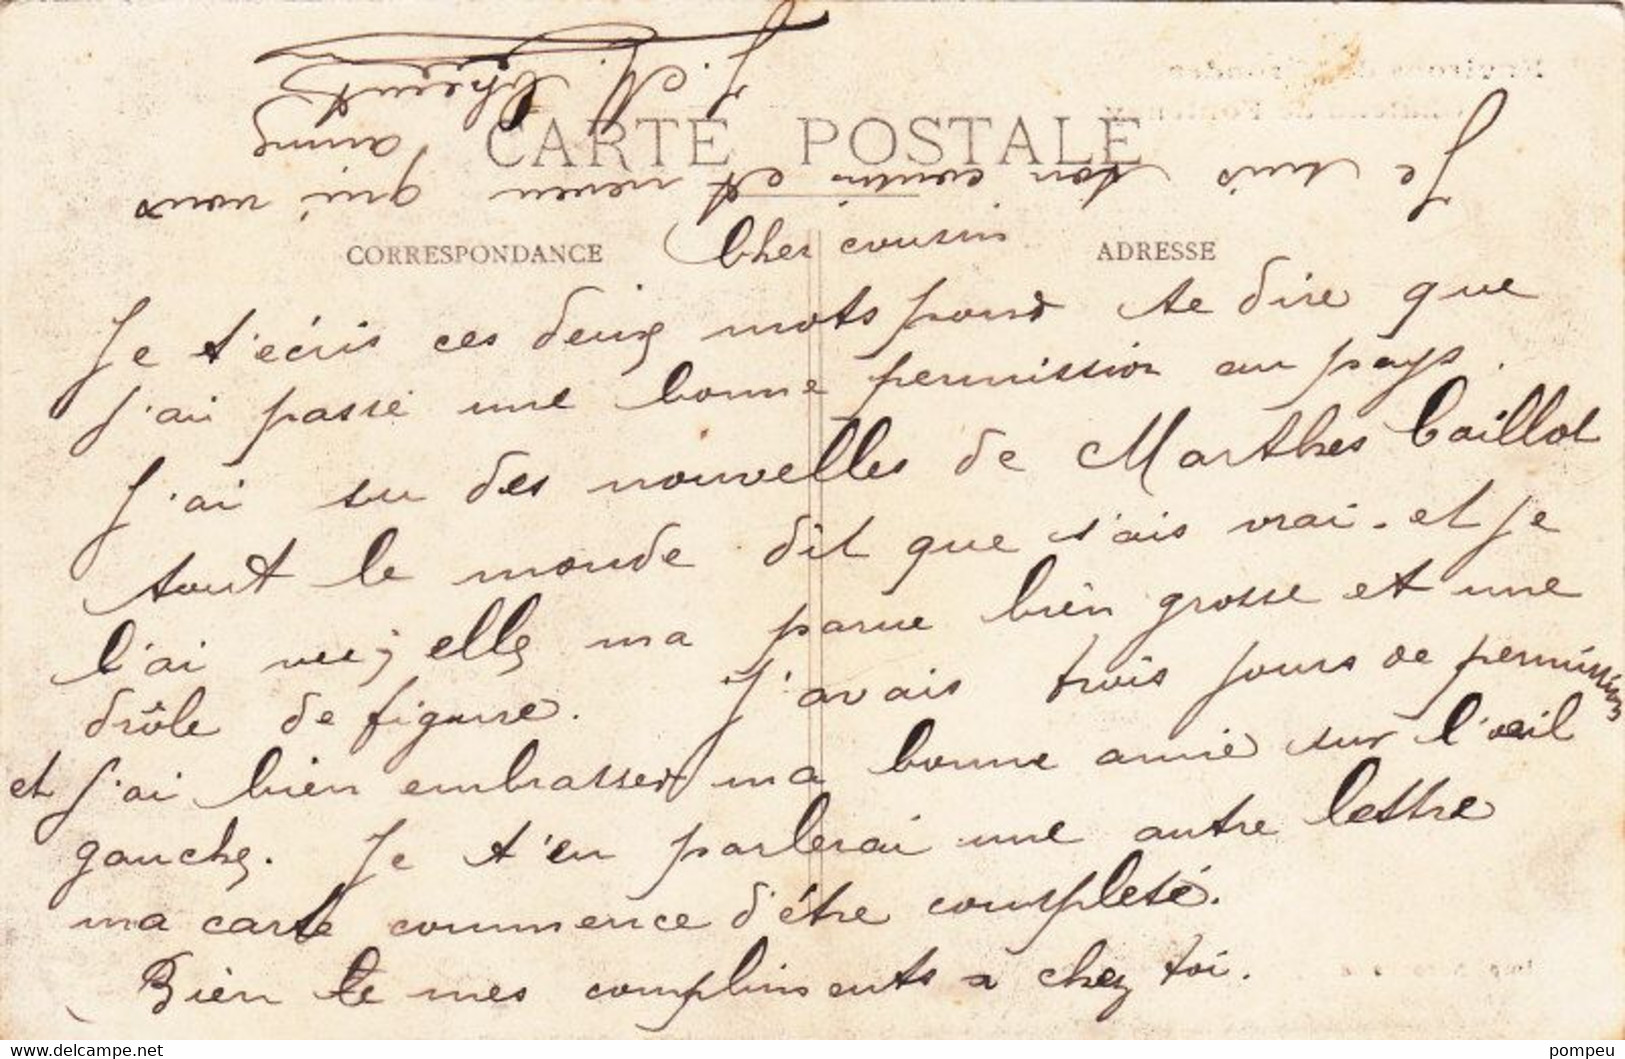 CARTE POSTALE
CORRESPONDANCE
ADRESSE
Cher cousin
Je t'écris ces deux mots pour te dire que
j'ai passé une bonne permission au pays.
J'ai su des nouvelles de Marthes Caillot
tout le monde dit que s'ais vrai. et je
l'ai vue; elle ma parue bien grosse et une
drôle de figure. J'avais trois jours de permission
et j'ai bien embrasser ma bonne amie sur l'oeil
gauche. Je t'en parlerai une autre lettre
ma carte commence d'être completé.
Bien le mes compliments a chez toi.
Je suis ton cousin et neveu qui vous
aime
J. M.
pompeu